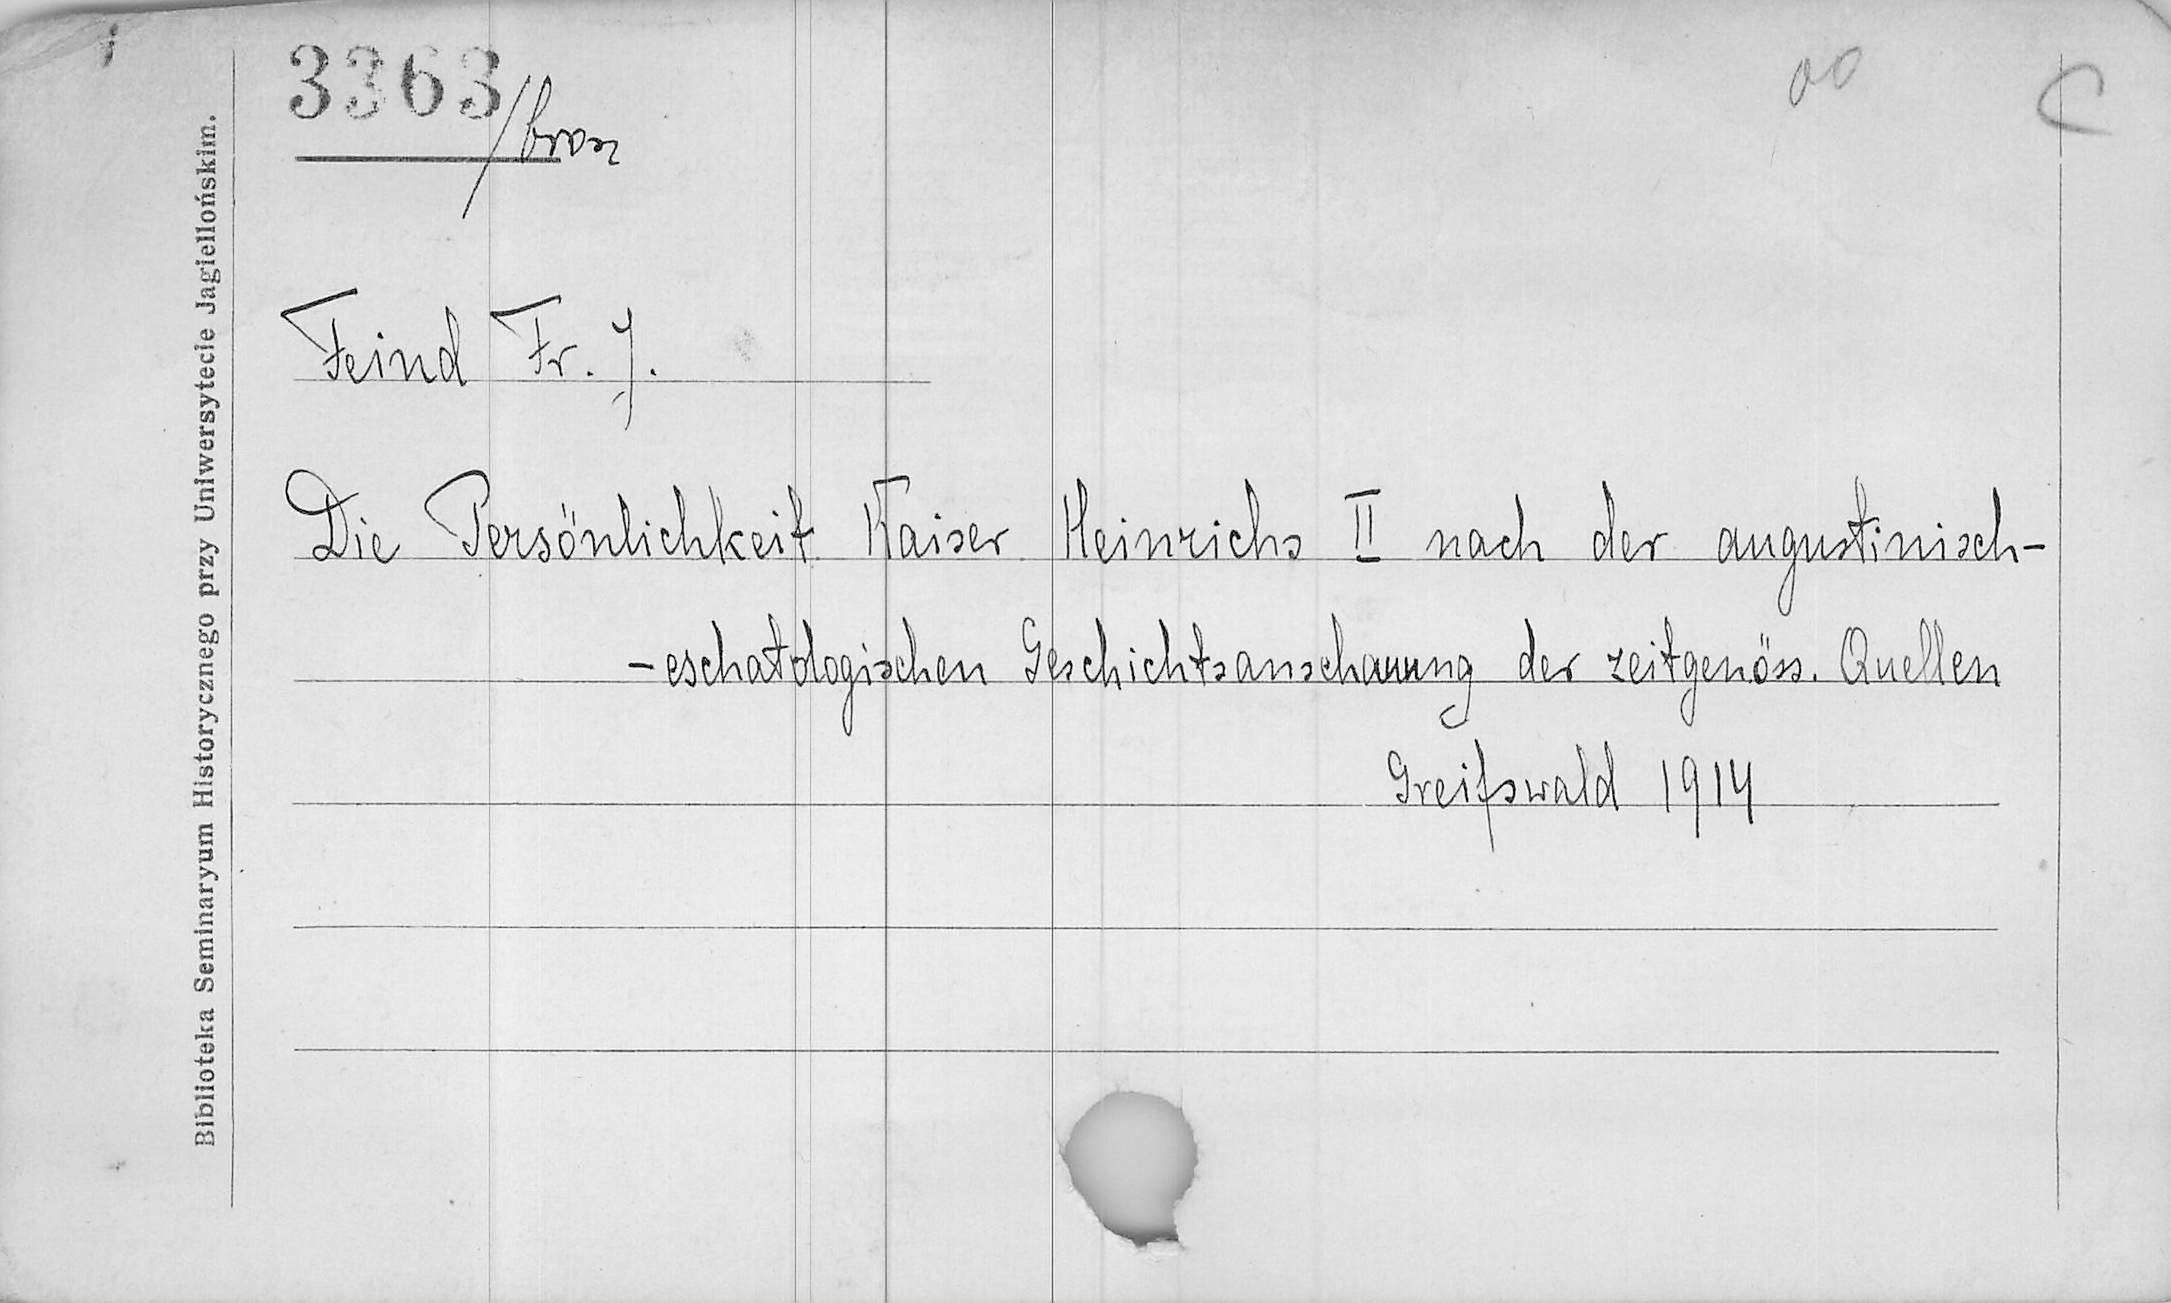 3363/brosz
Feind Fr. J.
Die Persönlichkeit Kaiser Heinrichs II nach der augustinisch-
-eschatologischen Geschichtsanschauung der zeitgenöss. Quellen
Greifswald 1914
Biblioteka Seminaryum Historycznego przy Uniwersytecie Jagiellońskim.
C